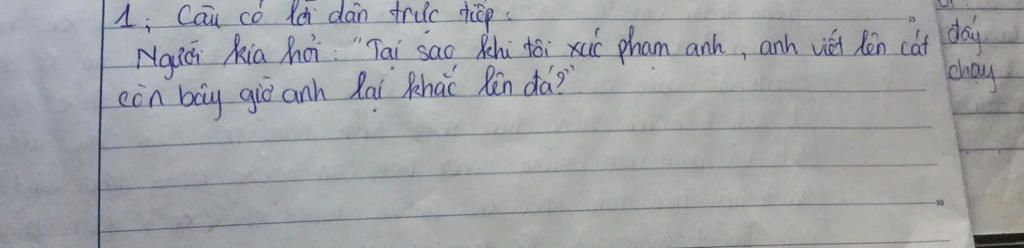 1, Câu có lời dẫn trực tiếp:
Người kia hỏi: "Tại sao khi tôi xúc phạm anh, anh viết lên cát
còn bây giờ anh lại khắc lên đá?"
đáy
chạy